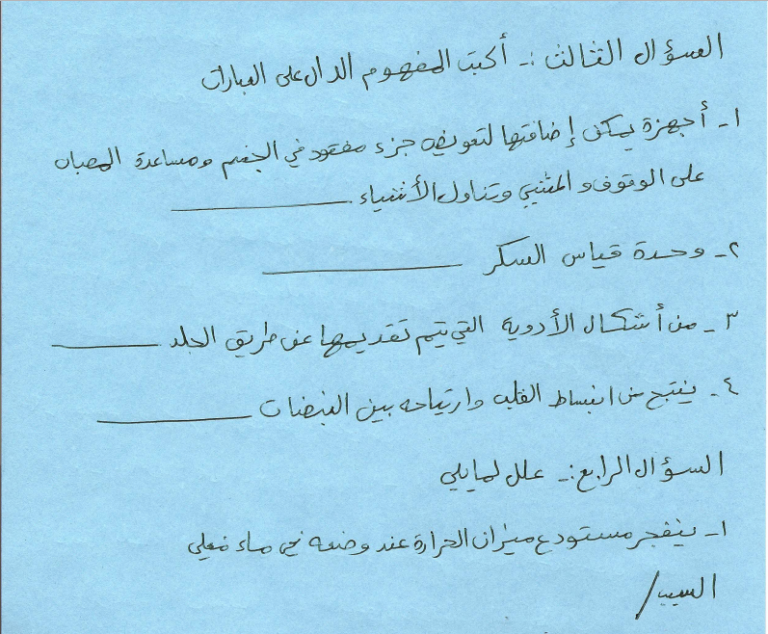 السؤال الثالث :- أكتب المفهوم الدال على العبارات
١- أجهزة يمكن إضافتها لتعويض جزء مفقود في الجسم ومساعدة المصاب
على الوقوف والمشي وتناول الأشياء ـــــــــــــ
٢- وحدة قياس السكر ـــــــــــــ
٣- من أشكال الأدوية التي يتم تقديمها عن طريق الجلد ـــــــــــــ
٤- ينتج من انبساط القلب وارتياحه بين النبضات ـــــــــــــ
السؤال الرابع :- علل لما يلي
١- ينفجر مستودع ميزان الحرارة عند وضعه في ماء مغلي
السبب /